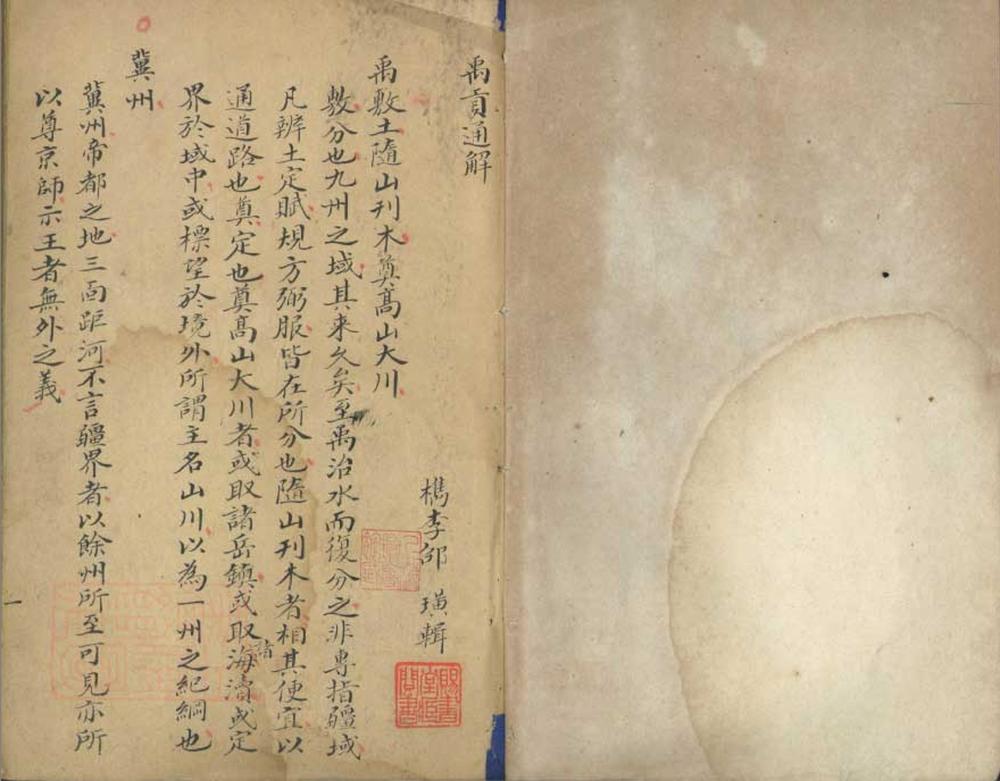 禹貢通解
檇李邵 璜輯
禹敷土隨山刋木奠髙山大川
敷分也九州之域其来久矣至禹治水而復分之非專指疆域
凡辨土定賦規方弼服皆在所分也隨山刋木者相其便宜以
通道路也奠定也奠髙山大川者或取諸岳鎮或取諸海瀆或定
界於域中或標望於境外所謂主名山川以為一州之紀綱也
冀州
冀州帝都之地三面距河不言疆界者以餘州所至可見亦所
以尊京師示王者無外之義
賜書堂恒閱書
一